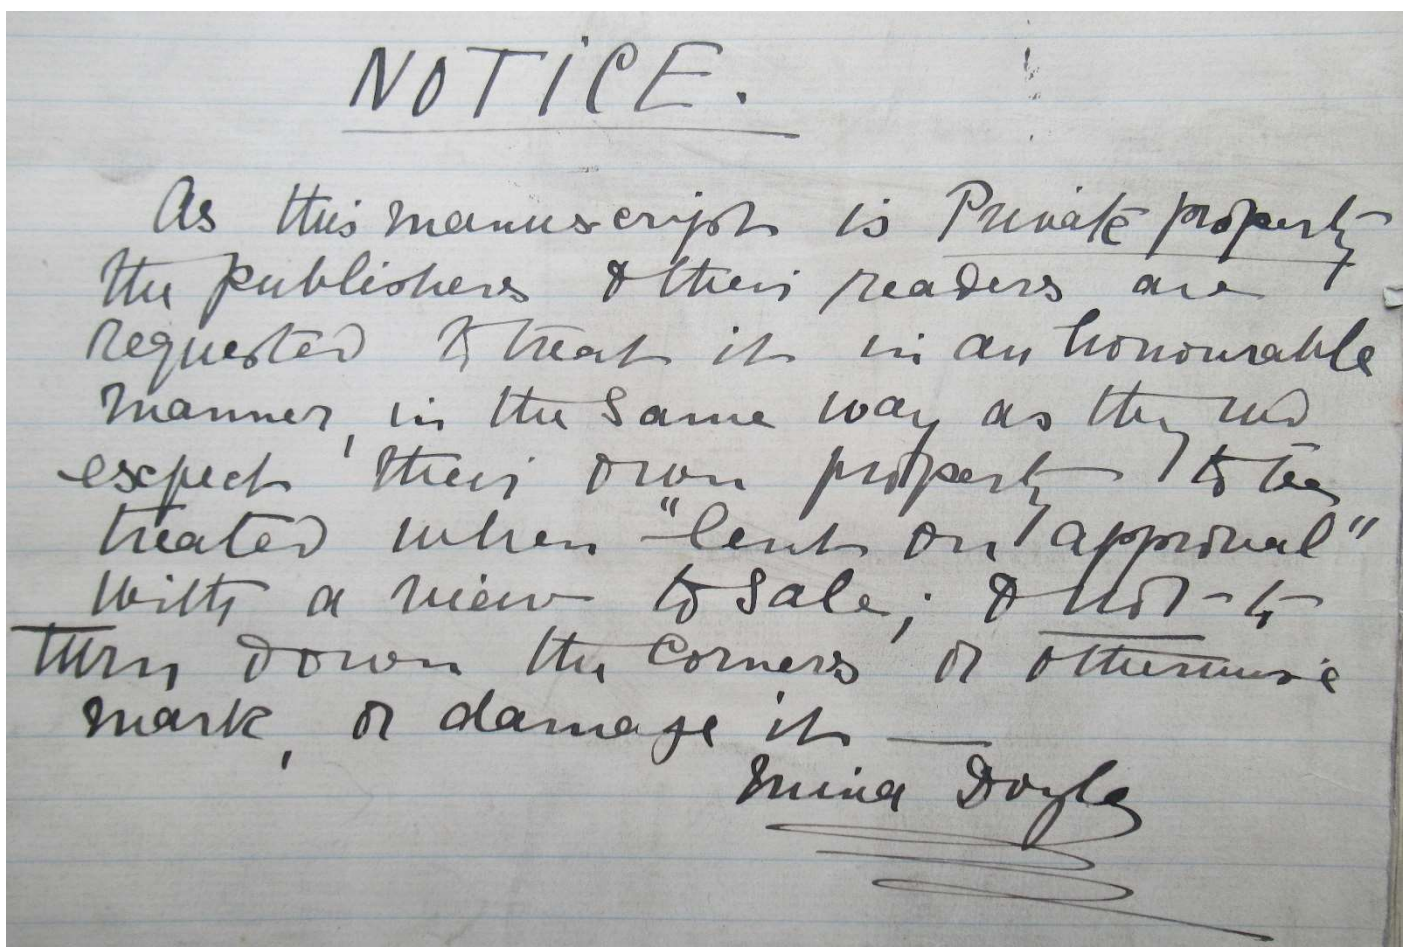 NOTICE.
As this manuscript is Private property
the publishers & their readers are
requested to treat it in an honourable
manner, in the same way as they wd
expect their own property to be
treated when "lent on approval"
with a view to sale; & not to
turn down the corners or otherwise
mark, or damage it —
Mina Doyle